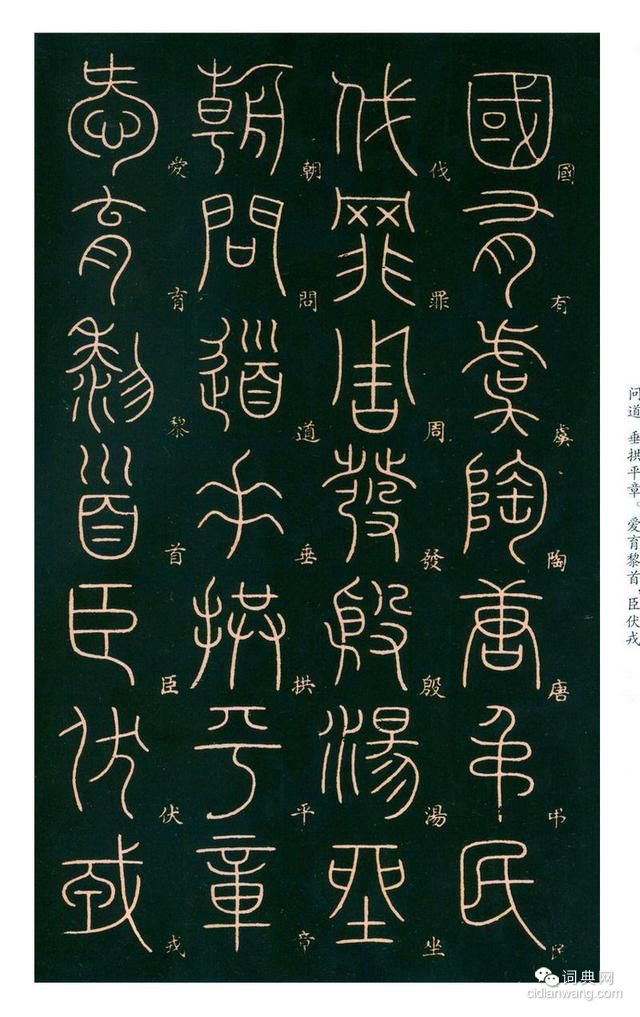 國有虞陶唐弔民
伐罪周發殷湯坐
朝問道垂拱平章
愛育黎首臣伏戎
國有虞陶唐弔民
伐罪周發殷湯坐
朝問道垂拱平章
愛育黎首臣伏戎
问道 垂拱平章。爱育黎首,臣伏戎
词典网
cidianwang.com